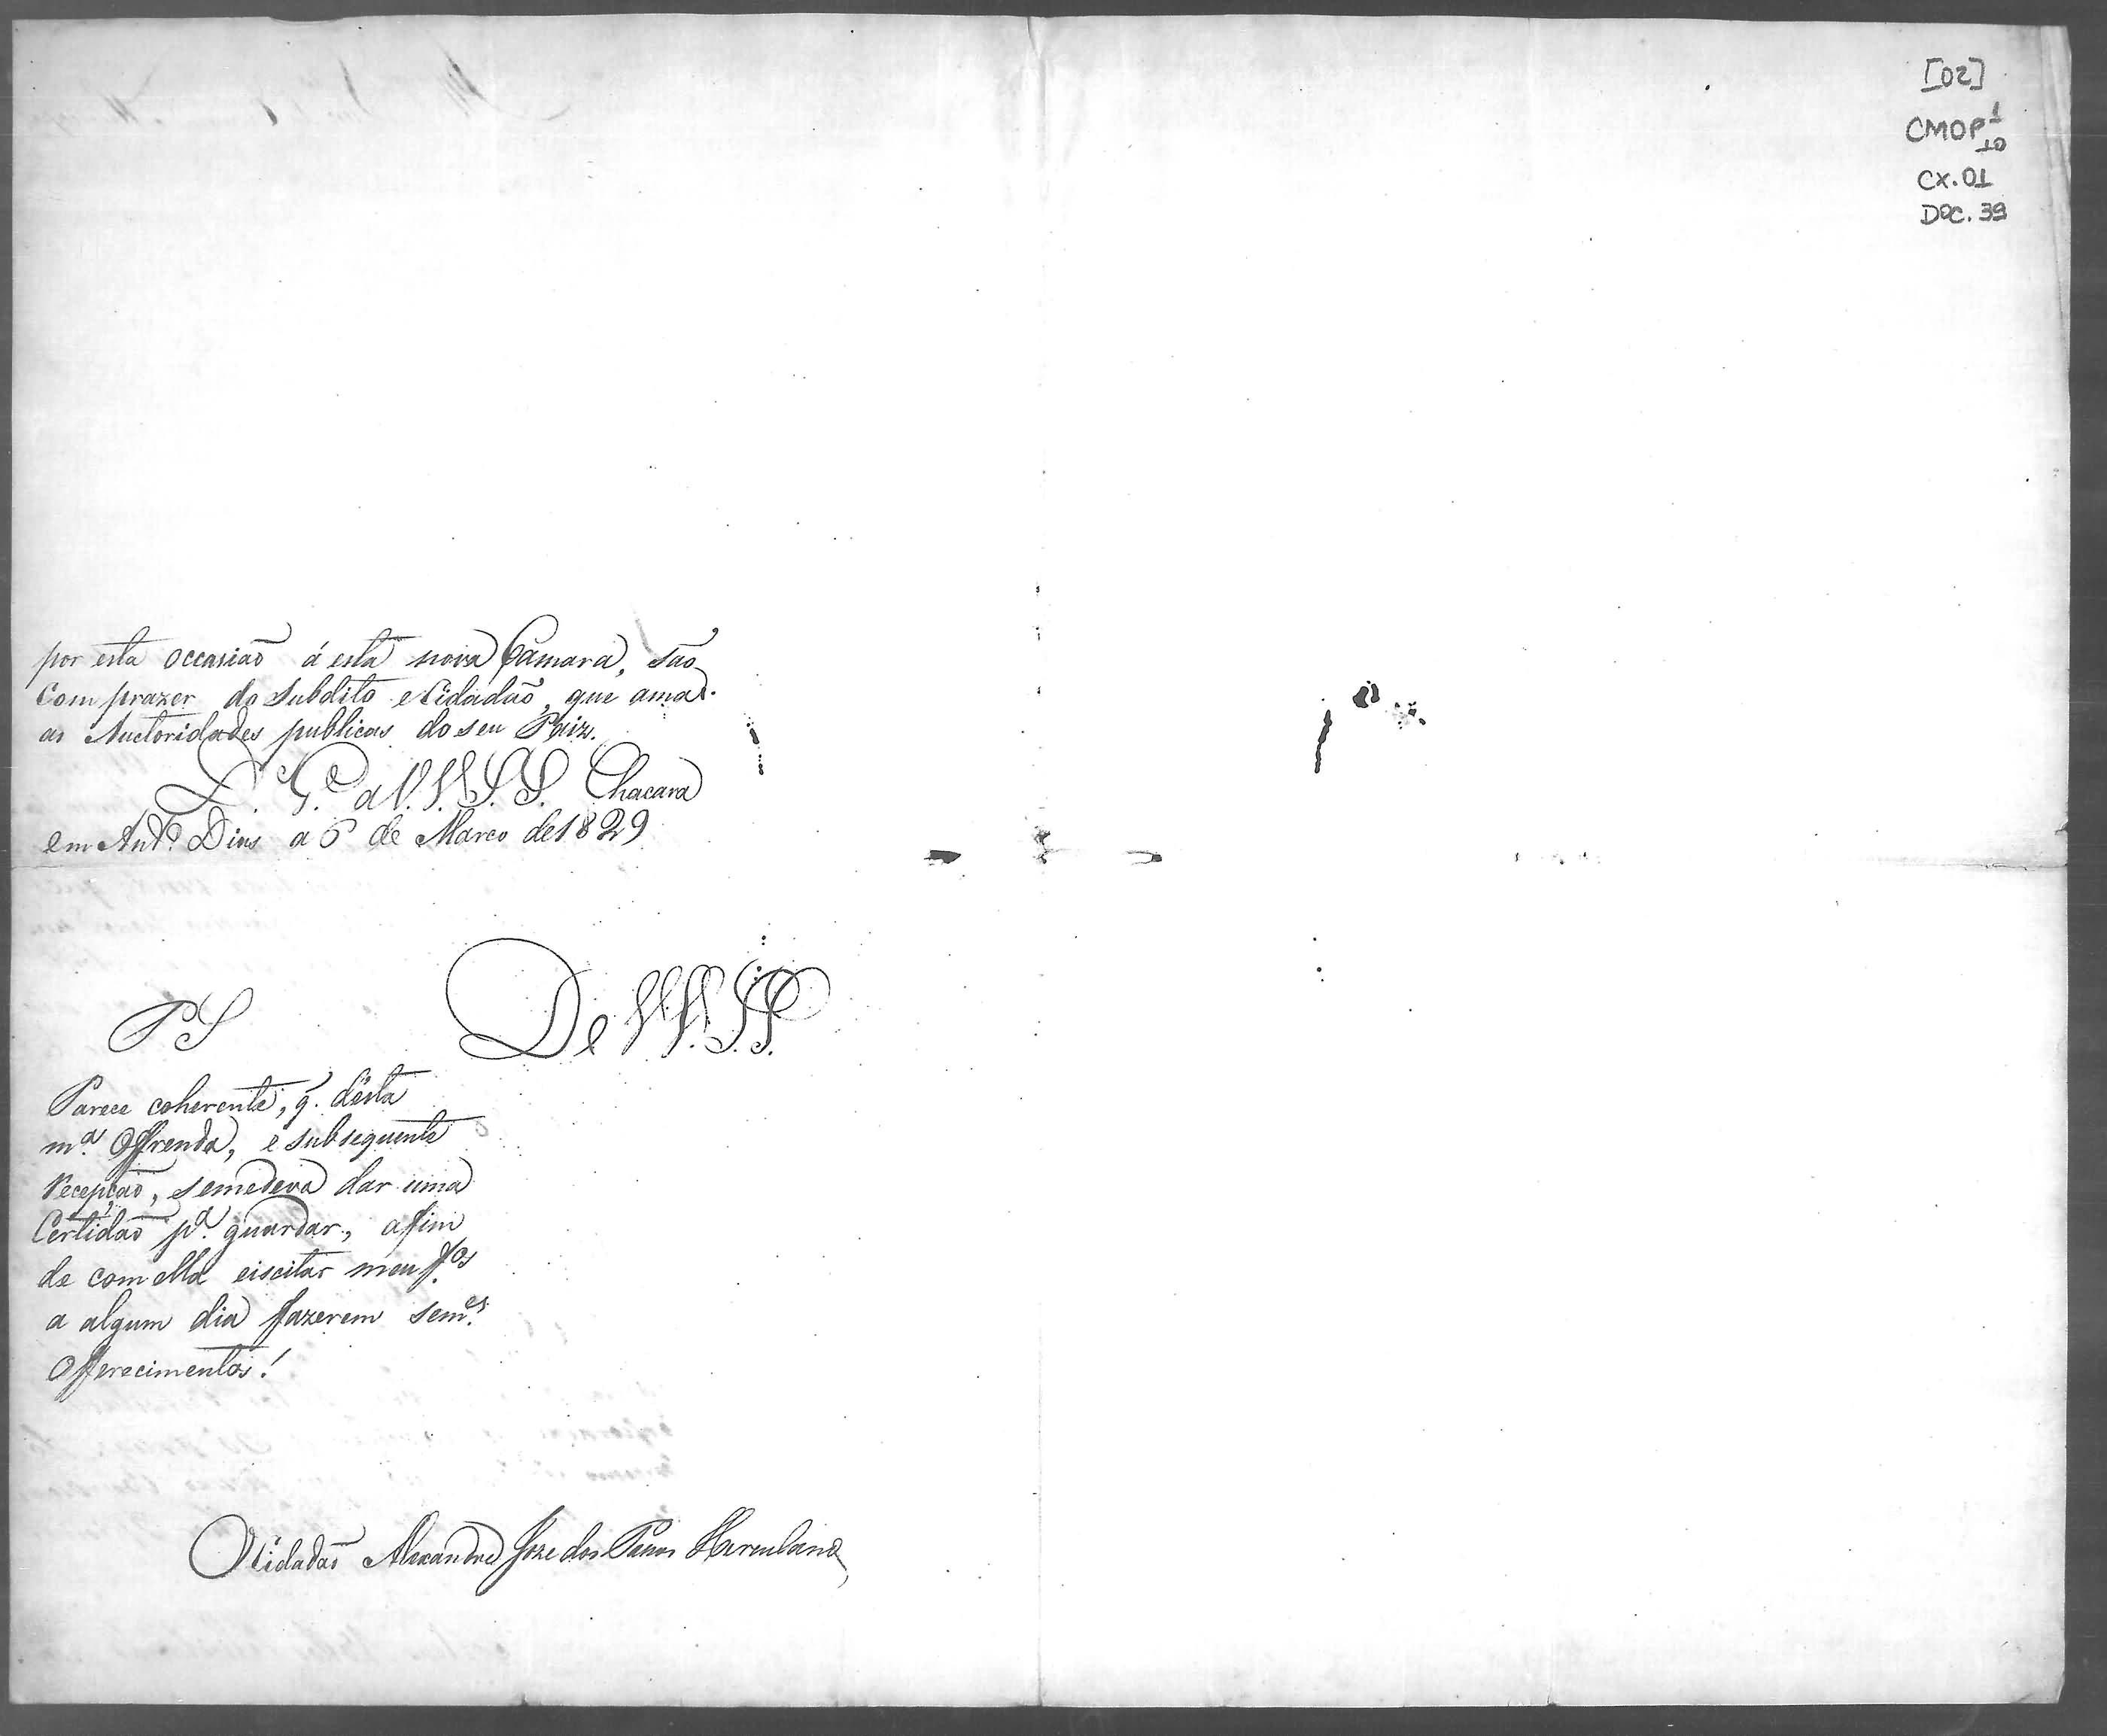 [02]
CMOP 1/10
CX.01
DOC. 39
por esta occasiaõ á esta nova Camara, saõ
Com prazer do Subdito e Cidadaõ, que ama
as Auctoridades publicas do seu Paiz.
D. G.e a V.V.S.S. Chacara
em Ant.o Dias a 6 de Marco de 1829
De V.V.S.S.
PS
Parece coherente, q. désta
m.a Offrenda, e subsequente
Recepçaõ, semedeva dar uma
Certidaõ p.a guardar, afim
de com ella eiscitar meu f.os
a algum dia fazerem sem.es
Offerecimentos!
O Cidadaõ Alexandre Joze dos Passos Herculano